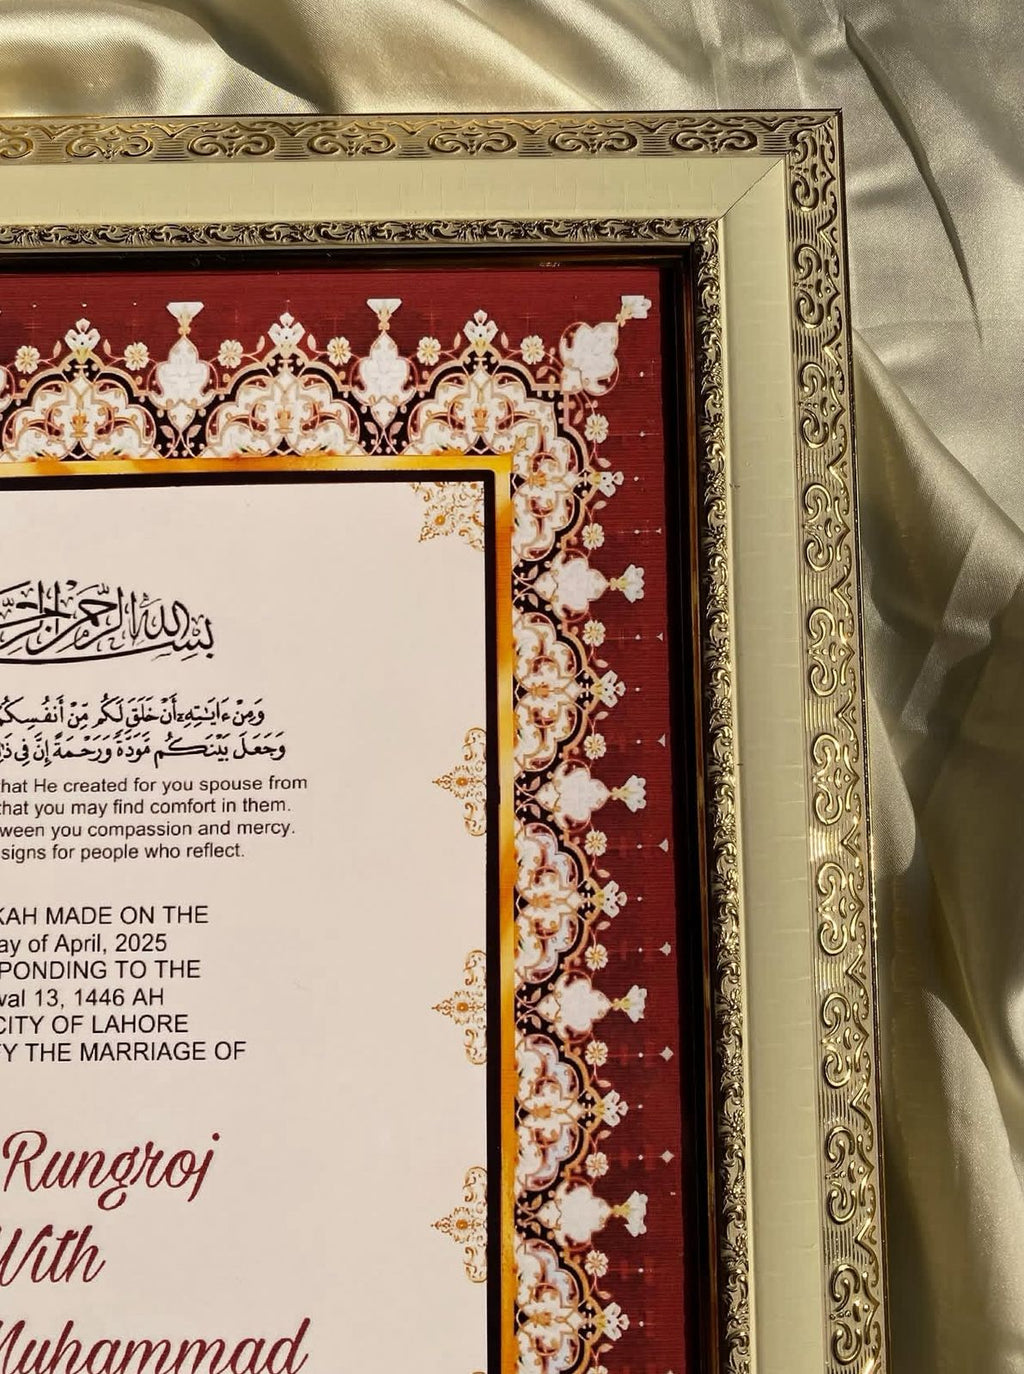 بسم الله الرحمن الرحيم
وَمِنْ ءَايَـٰتِهِۦٓ أَنْ خَلَقَ لَكُم مِّنْ أَنفُسِكُمْ
وَجَعَلَ بَيْنَكُم مَّوَدَّةً وَرَحْمَةً إِنَّ فِى
hat He created for you spouse from
that you may find comfort in them.
ween you compassion and mercy.
signs for people who reflect.
KAH MADE ON THE
ay of April, 2025
PONDING TO THE
wal 13, 1446 AH
CITY OF LAHORE
Y THE MARRIAGE OF
Rungroj
With
Muhammad